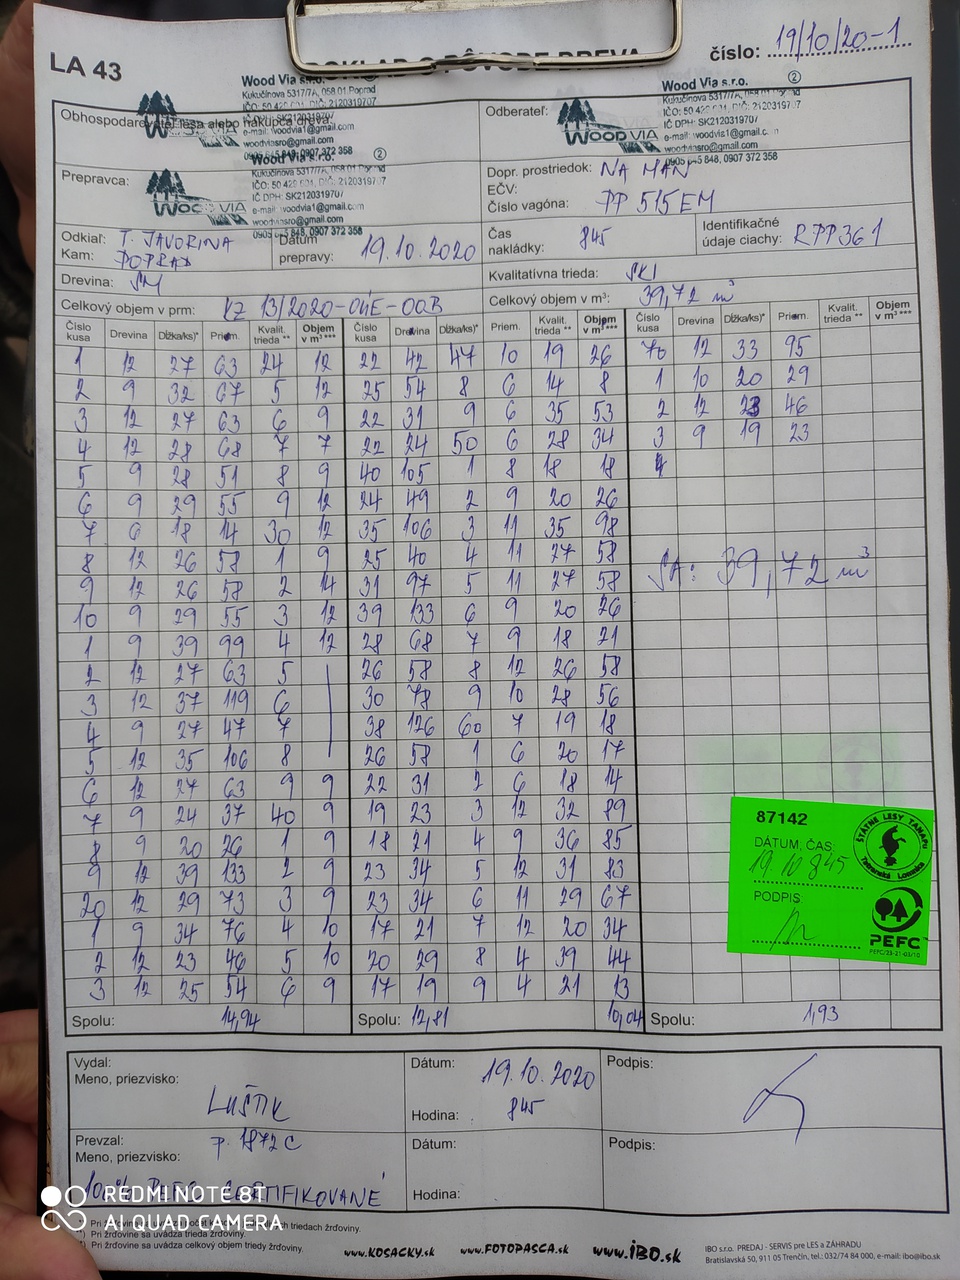 LA 43
číslo: 19/10/20-1
Wood Via s.r.o. ②
Kukučínova 5317/7A, 058 01 Poprad
IČ DPH: SK2120319707
e-mail: woodvia1@gmail.com
woodviasro@gmail.com
0907 372 358
WOOD VIA
Odberateľ:
Wood Via s.r.o. ②
Kukučínova 5317/7A,
IČ DPH: SK2120319707
e-mail: woodvia1@gmail.c
woodviasro@gmail.com
0905 845 848, 0907 372 358
WOOD VIA
Prepravca:
Wood Via s.r.o. ②
Kukučínova 5317/7A, 058 01 Poprad
IČ DPH: SK2120319707
e-mail: woodvia1@gmail.com
woodviasro@gmail.com
0905 845 848, 0907 372 358
WOOD VIA
Dopr. prostriedok: NA MAN
EČV:
Číslo vagóna: PP 515 EM
Odkiaľ: T. JAVORINA
Kam: POPRAD
Dátum prepravy: 19.10.2020
Čas nakládky: 845
Identifikačné údaje ciachy: RPP361
Drevina: SM
Kvalitatívna trieda: SKI
Celkový objem v prm: KZ 13/2020-04E-OOB
Celkový objem v m³: 39,72 m³
Číslo kusa Drevina Dĺžka/ks)* Priem. Kvalit. trieda ** Objem v m³ *** Číslo kusa Drevina Dĺžka/ks)* Priem. Kvalit. trieda ** Objem v m³ *** Číslo kusa Drevina Dĺžka/ks)* Priem. Kvalit. trieda ** Objem v m³ ***
1 12 27 63 24 12 22 42 47 10 19 26 70 12 33 95
2 9 32 67 5 12 25 54 8 6 14 8 1 10 20 29
3 12 27 63 6 9 22 31 9 6 35 53 2 12 23 46
4 12 28 68 7 7 22 24 50 6 28 34 3 9 19 23
5 9 28 51 8 9 40 105 1 8 18 18 4
6 9 29 55 9 12 24 49 2 9 20 26
7 6 18 14 30 12 35 106 3 11 35 98
8 12 26 58 1 9 25 40 4 11 27 58
9 12 26 58 2 14 31 97 5 11 27 58
SA: 39,72 m³
10 9 29 55 3 12 39 133 6 9 20 26
1 9 39 99 4 12 28 68 7 9 18 21
2 12 27 63 5 26 58 8 12 26 58
3 12 37 119 6 30 78 9 10 28 56
4 9 27 47 7 38 126 60 7 19 18
5 12 35 106 8 26 58 1 6 20 17
6 12 27 63 9 9 22 31 2 6 18 14
7 9 24 37 40 9 19 23 3 12 32 89
8 9 20 26 1 9 18 21 4 9 36 85
9 12 39 133 2 9 23 34 5 12 31 83
20 12 29 73 3 9 23 34 6 11 29 67
1 9 34 76 4 10 17 21 7 12 20 34
2 12 23 46 5 10 20 29 8 4 39 44
3 12 25 54 6 9 17 19 9 4 21 13
Spolu: 14,94 Spolu: 12,81 10,04 Spolu: 1,93
87142
DÁTUM, ČAS:
19.10 845
PODPIS:
ŠTÁTNE LESY TANAPU
Tatranská Lomnica
PEFC
Vydal:
Meno, priezvisko:
LUŠTIK
Dátum: 19.10.2020
Hodina: 845
Podpis:
Prevzal:
Meno, priezvisko:
Dátum:
Hodina:
Podpis:
CERTIFIKOVANÉ
REDMI NOTE 8T
AI QUAD CAMERA
) Pri žrďovine sa uvádza trieda žrďoviny.
) Pri žrďovine sa uvádza celkový objem triedy žrďoviny.
www.KOSACKY.sk www.FOTOPASCA.sk www.iBO.sk
IBO s.r.o. PREDAJ - SERVIS pre LES a ZÁHRADU
Bratislavská 50, 911 05 Trenčín, tel.: 032/74 84 000, e-mail: ibo@ibo.sk